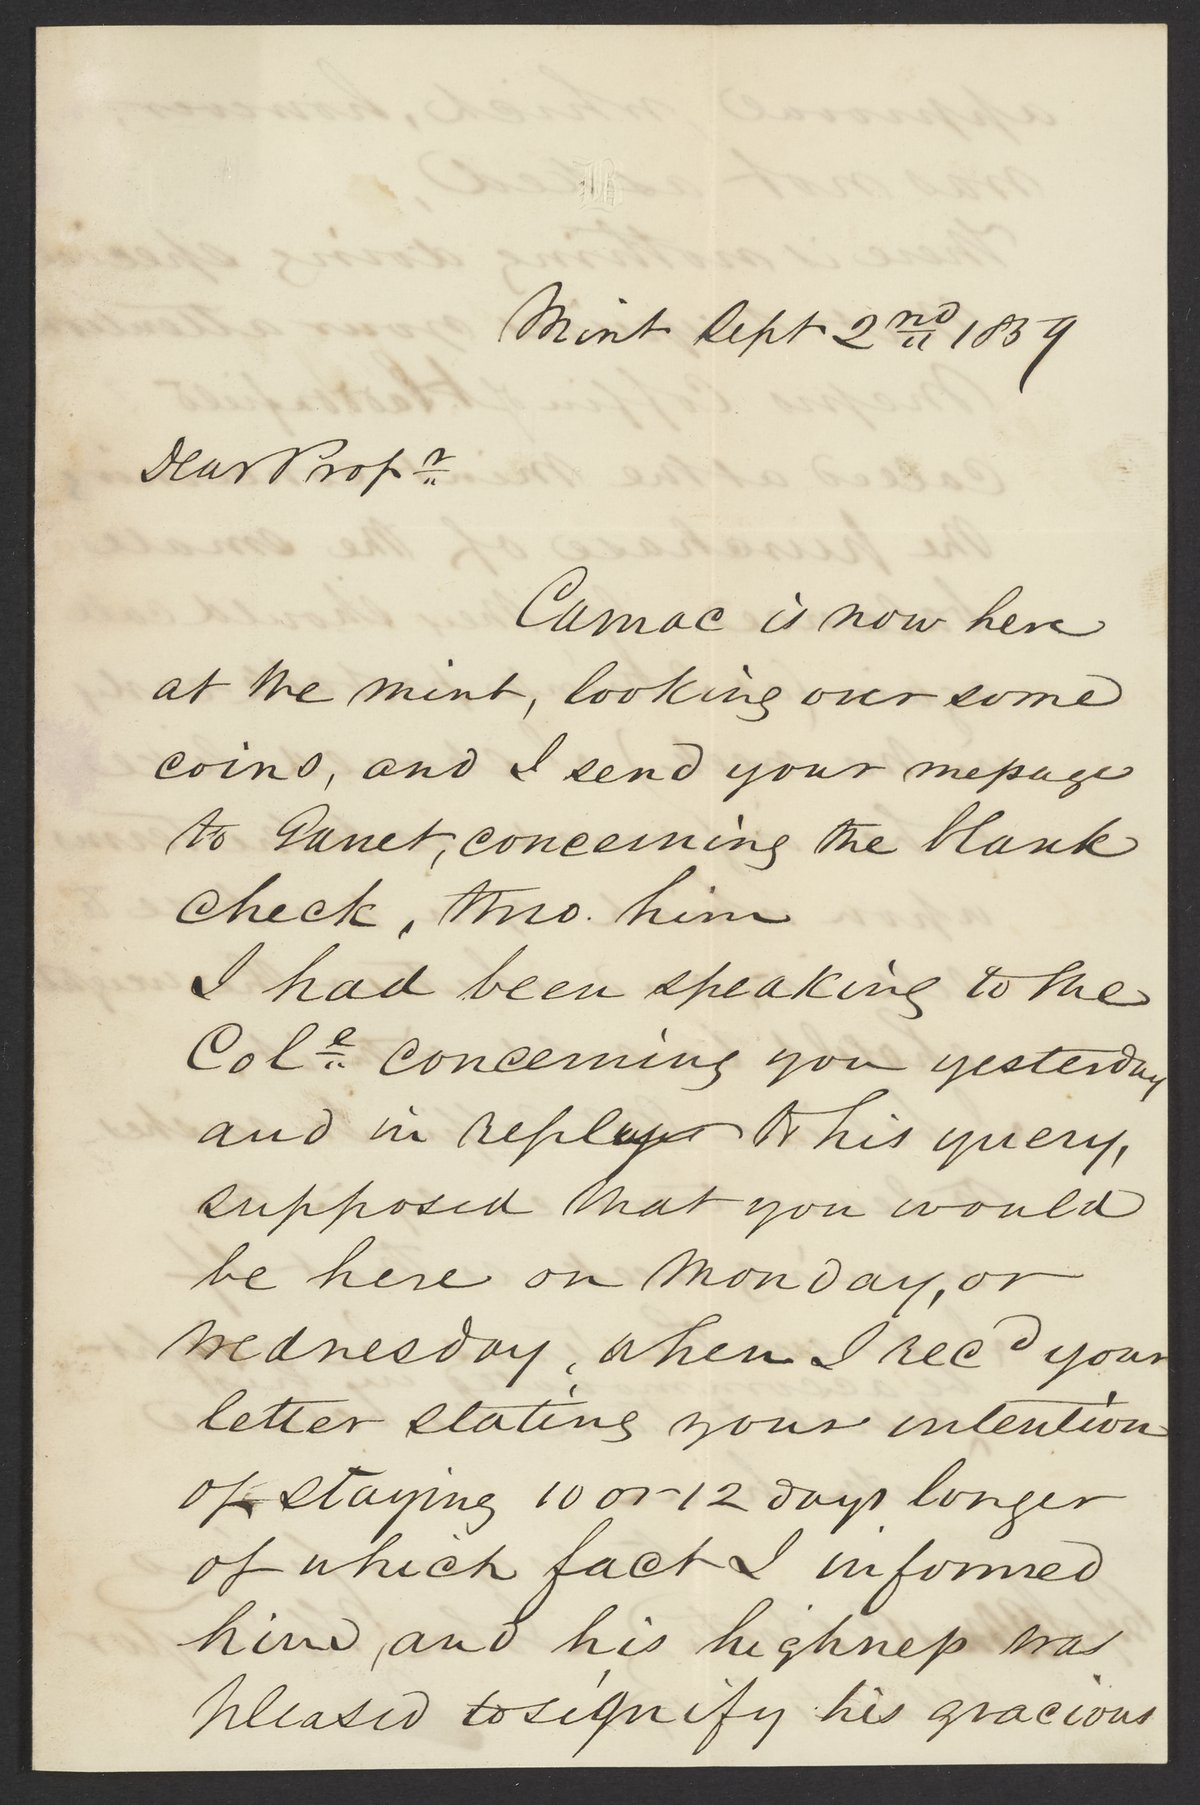 Mint Sept 2nd 1859
Dear Profr
Camac is now here
at the mint, looking over some
coins, and I send your message
to Janet, concerning the blank
check, thro. him
I had been speaking to the
Cole concerning you yesterday
and in reply to his query,
supposed that you would
be here on Monday, or
Wednesday, when I recd your
letter stating your intention
of staying 10 or 12 days longer
of which fact I informed
him, and his highness was
pleased to signify his gracious